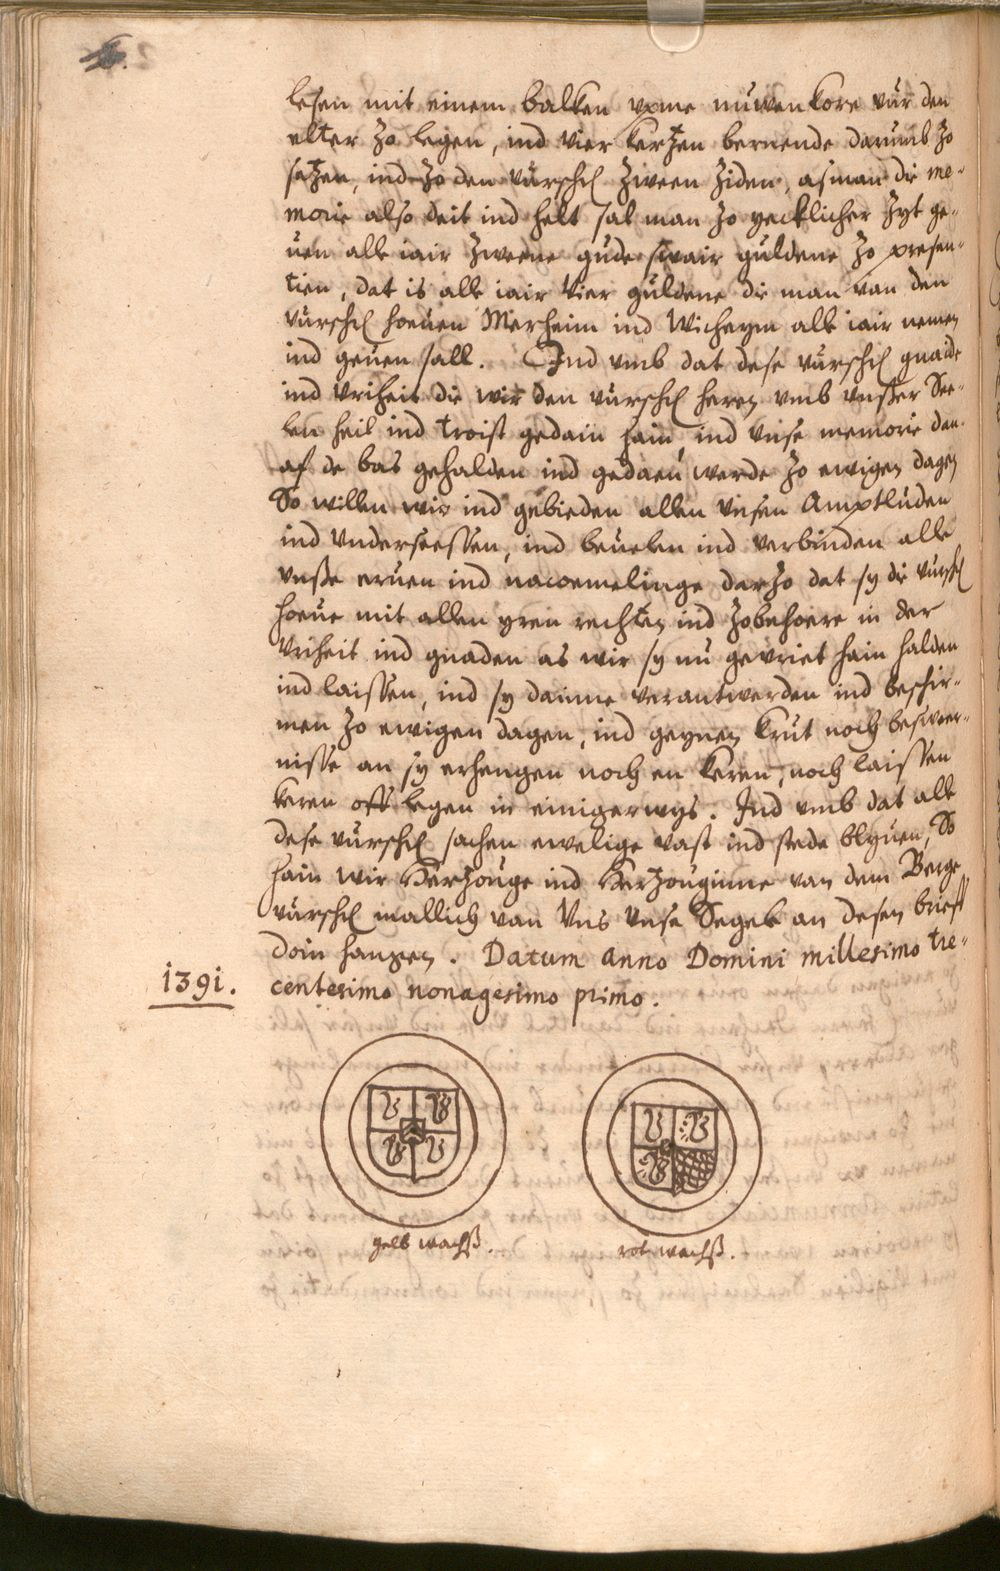 lesen mit einem balken vpme nuwen kore vur den
elter zo legen, ind vier kertzen bernende darumb zo
setzen, ind zo den vurschr zween ziden, asman die me-
morie also deit ind helt sal man zo yecklicher zyt ge-
uen alle iair zweene gude swair guldene zo presen-
tien, dat is alle iair vier guldene die man van den
vurschr hoeuen Merheim ind Wicheym alle iair nemen
ind geuen sall. Ind vmb dat dese vurschr gnaide
ind vriheit die wir den vurschr heren vmb vnsser See-
len heil ind troist gedain hain, ind vnse memorie dan
af de bas gehalden ind gedaen werde zo ewigen dagen
So willen wir ind gebieden allen vnsen Amptluden
ind vnderseessen, ind beuelen ind verbinden alle
vnsse eruen ind nacoemelinge darzo dat sy die vurschr
hoeue mit allen yren rechten ind zobehoere in der
vriheit ind gnaden as wir sy nu gevriet hain halden
ind laissen, ind sy dainne verantwerden ind beschir-
men zo ewigen dagen, ind geynen krut noch beswer-
nisse an sy erhengen noch en keren, noch laissen
keren off legen in einigerwys. Ind vmb dat alle
dese vurschr sachen ewelige vast ind stede blyuen, So
hain wir Herzouge ind Herzouginne van dem Berge
vurschr mallich van vns vnse Segele an desen brieff
doin hangen. Datum anno Domini millesimo tre-
1391. centesimo nonagesimo primo.
gelb wachß.
rot wachß.